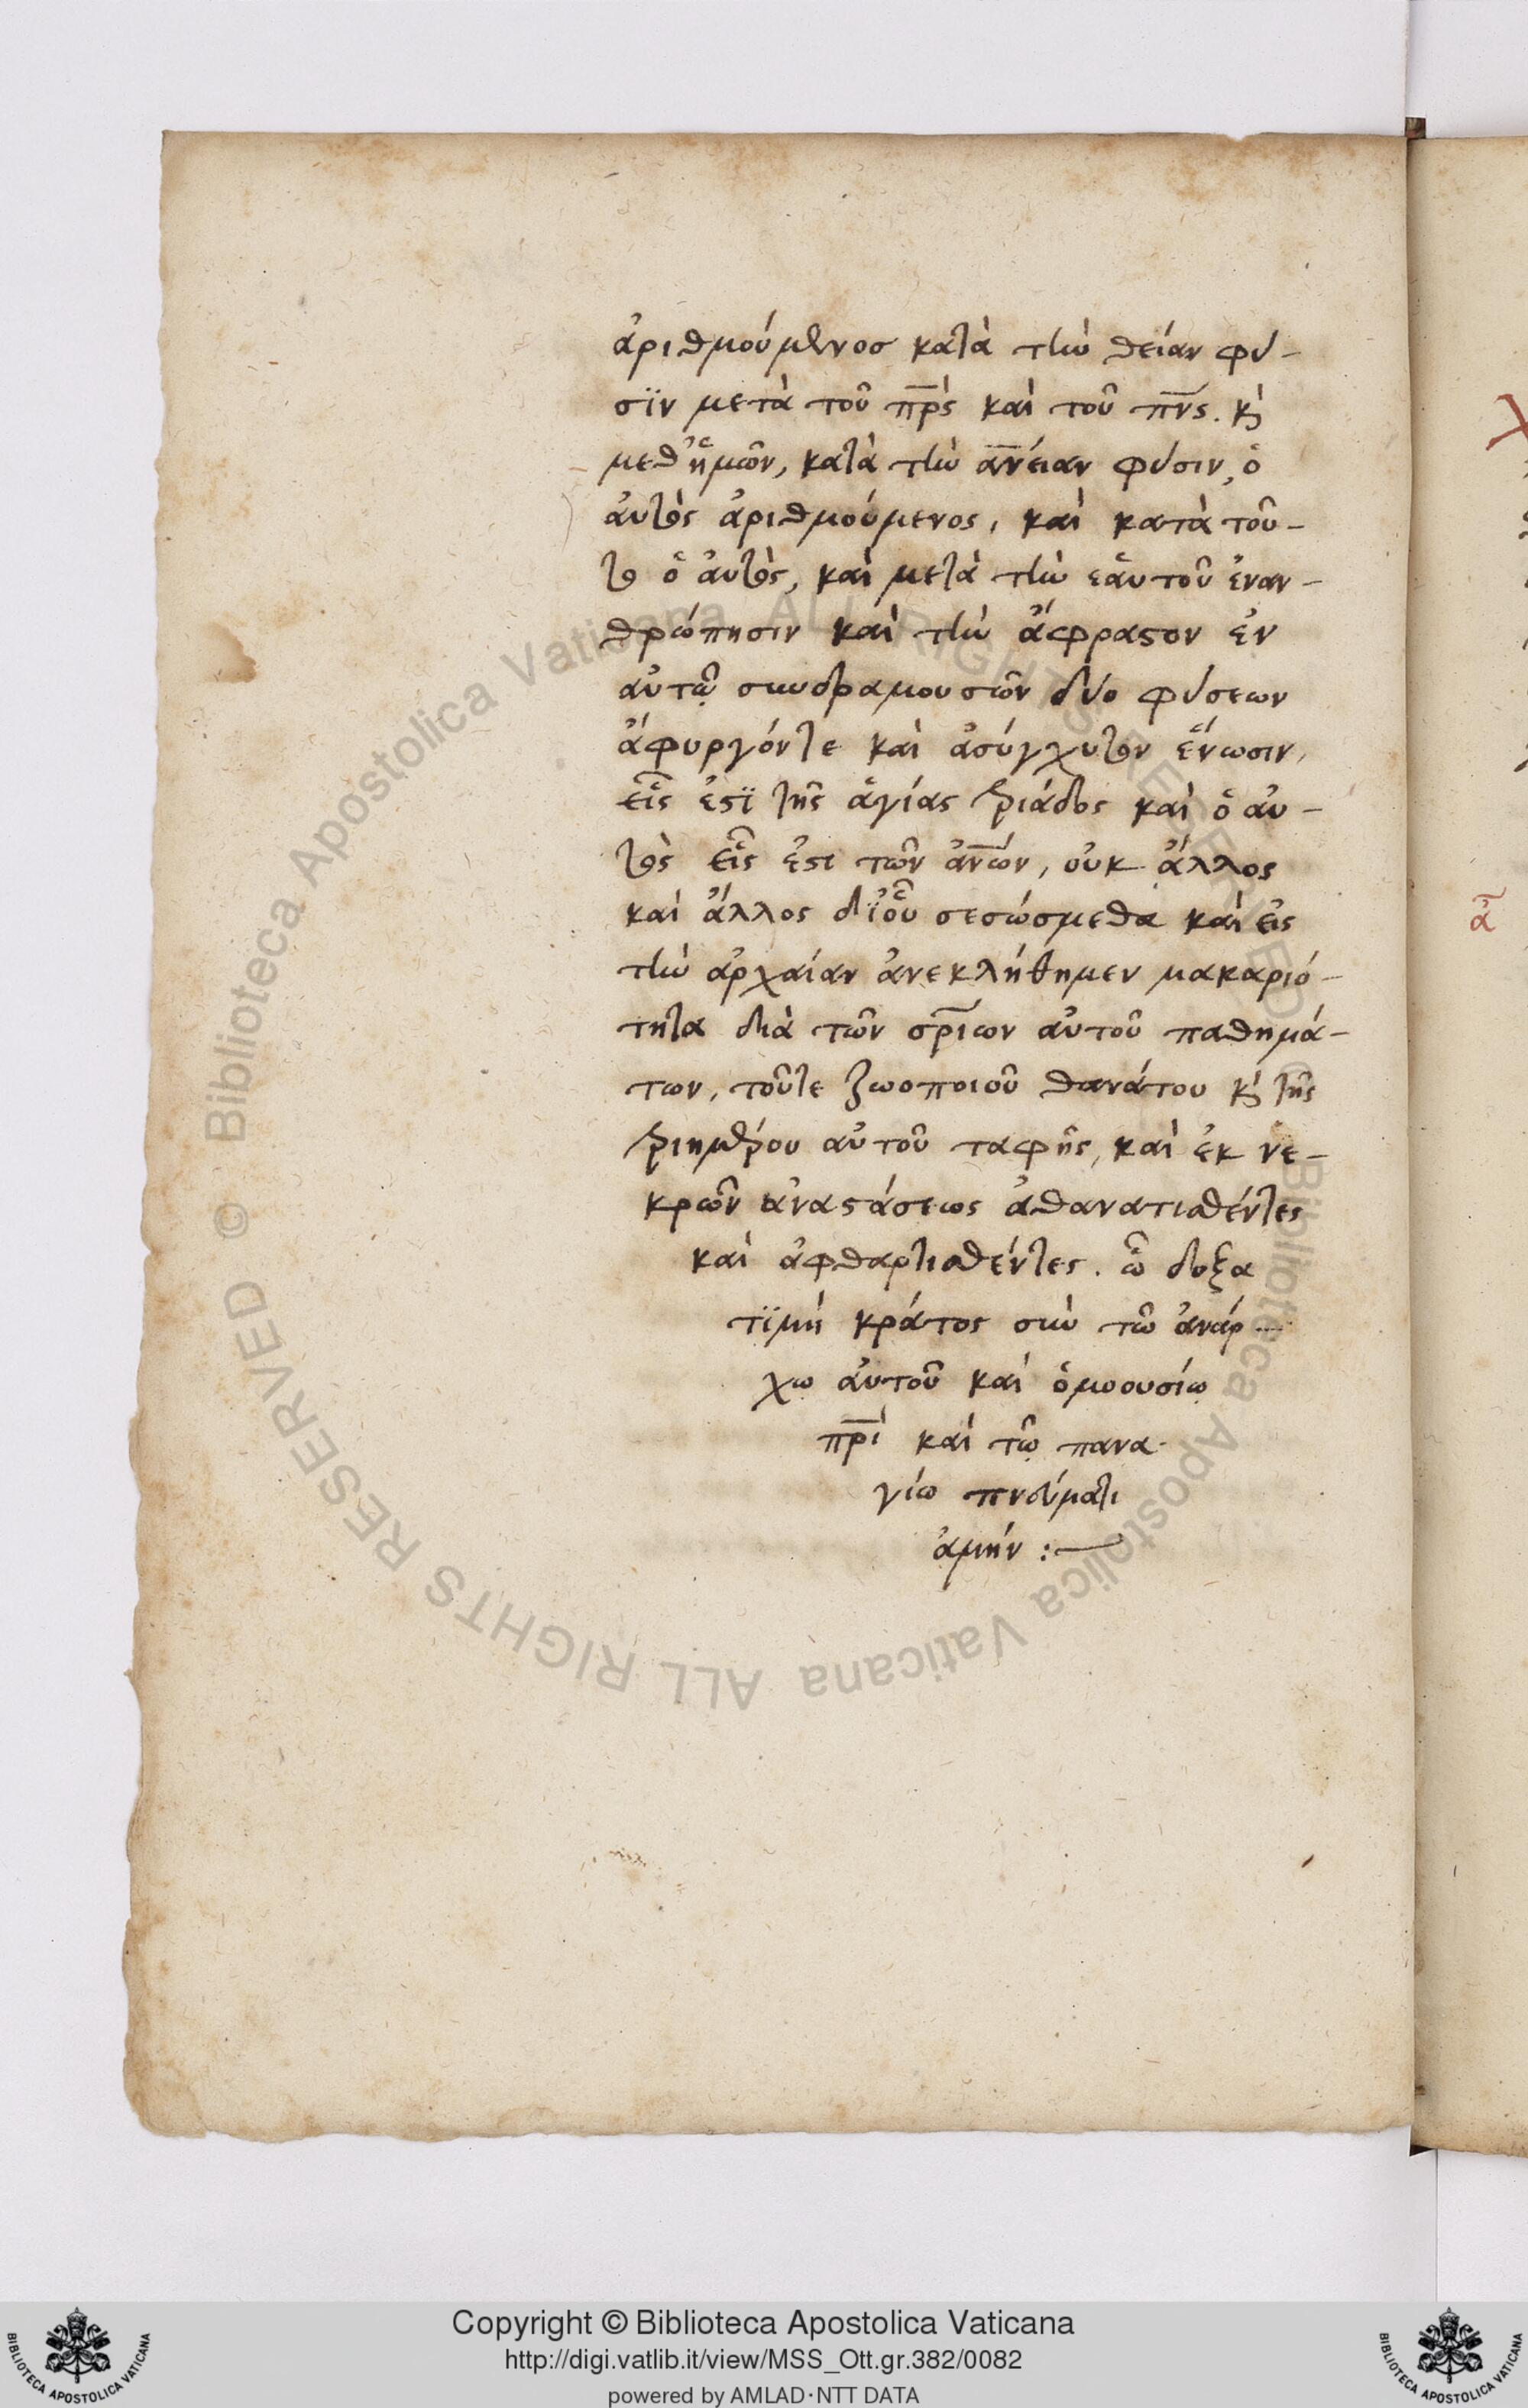 ἀριθμούμενοσ κατὰ τὴν θείαν φύ-
σϊν μετὰ τοῦ πρ̅ς καὶ τοῦ πν̅ς. κὶ
μεθ' ἡμῶν, κατὰ τὴν ἀν̅είαν φύσιν, ὁ
ἀυτὸς ἀριθμούμενος, καὶ κατὰ τοῦ-
το ὁ ἀυτὸς, καὶ μετὰ τὴν ἑαυτοῦ ἐναν-
θρώπησιν καὶ τὴν ἄφραστον ἐν
αὐτῷ συνδραμουσῶν δύο φύσεων
ἄφυρτόντε καὶ ἀσύγχυτον ἕνωσιν,
εἷς ἐστϊ τῆς ἁγίας τριάδος καὶ ὁ αὐ-
τὸς εἷς ἐστι τῶν ἀν̅ων, οὐκ ἄλλος
καὶ ἄλλος δϊ οὗ σεσώσμεθα καὶ εἰς
τὴν αρχαίαν ἀνεκλήθημεν μακαριό-
τητα διὰ τῶν σρ̅ίων αὐτοῦ παθημά-
των, τοῦτε ζωοποιοῦ θανάτου κὶ τῆς
τριημέρου αὐτοῦ ταφῆς, καὶ ἐκ νε-
κρῶν ἀναστάσεως ἀθανατισθέντες
καὶ ἀφθαρτισθέντες. ὧ δοξα
τϊμή κράτος σὺν τῶ ἀνάρ-
χω αὐτοῦ καὶ ὁμοουσίω
πρ̅ὶ καὶ τῷ πανα-
γίω πνεύματι
ἀμήν :—
ἀ
Copyright © Biblioteca Apostolica Vaticana
http://digi.vatlib.it/view/MSS_Ott.gr.382/0082
powered by AMLAD·NTT DATA
BIBLIOTECA APOSTOLICA VATICANA
BIBLIOTECA APOSTOLICA VATICANA
© Biblioteca Apostolica Vaticana ALL RIGHTS RESERVED
© Biblioteca Apostolica Vaticana ALL RIGHTS RESERVED